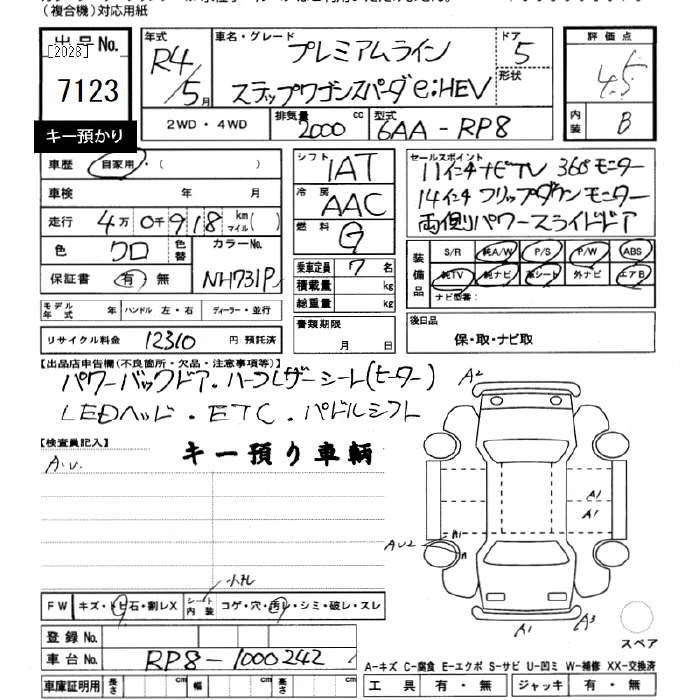 (複合機)対応用紙
出品No.
[2028]
7123
キー預かり
年式 R4/5月
車名・グレード プレミアムライン
ステップワゴンスパーダ e:HEV
ドア 5
形状
評価点 4.5
内装 B
2WD・4WD 排気量 2000 cc 型式 6AA-RP8
車歴 自家用・( )
車検 年 月
走行 4万0千918 km マイル( )
色 クロ 色替 カラーNo. NH731P
保証書 有 無
モデル年式 年 ハンドル 左・右 ディーラー・並行
リサイクル料金 12310 円 預託済
シフト IAT
冷房 AAC
燃料 G
乗車定員 7 名
積載量 kg
総重量 kg
書類期限
月 日
セールスポイント
11インチナビTV 360°モニター
14インチフリップダウンモニター
両側パワースライドドア
装備品 S/R 純A/W P/S P/W ABS
純TV 純ナビ 革シート 外ナビ エアB
ナビ型番:
後日品
保・取・ナビ取
【出品店申告欄(不良箇所・欠品・注意事項等)】
パワーバックドア・ハーフレザーシート(ヒーター)
LEDヘッド・ETC・パドルシフト
【検査員記入】
A.U.
キー預り車輌
A2
A1
A1
AU2
A1
A
A1
A3
スペア
小キレ
FW キズ・トビ石・割レX シート内装 コゲ・穴・汚レ・シミ・破レ・スレ
登録No.
車台No. RP8-1000242
車庫証明用 長さ cm 幅 cm 高さ cm
A-キズ C-腐食 E-エクボ S-サビ U-凹ミ W-補修 XX-交換済
工具 有・無 ジャッキ 有・無